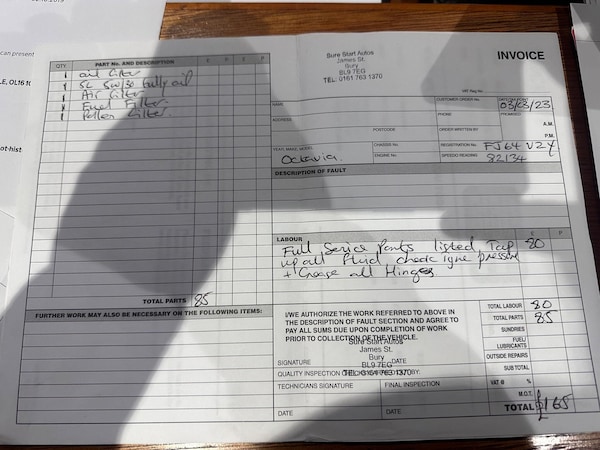 can present
LE, OL16 1
ot-hist
QTY PART No. AND DESCRIPTION £ P £ P
1 oil filter
1 5L 5w/30 fully oil
1 Air filter
1 Fuel Filter.
1 Pollen filter.
TOTAL PARTS 85
FURTHER WORK MAY ALSO BE NECESSARY ON THE FOLLOWING ITEMS:
Sure Start Autos
James St.
Bury
BL9 7EG
TEL: 0161 763 1370
INVOICE
VAT Reg No.
NAME
CUSTOMER ORDER No.
03/03/23
ADDRESS
PHONE
PROMISED
A.M.
POSTCODE
ORDER WRITTEN BY
P.M.
YEAR, MAKE, MODEL
Octavia.
CHASSIS No.
REGISTRATION No. FJ64 VZY
ENGINE No.
SPEEDO READING 82134
DESCRIPTION OF FAULT
LABOUR £ P
Full Service Parts listed, Top 80
up all fluid check tyre pressure
+ Grease all Hinges
I/WE AUTHORIZE THE WORK REFERRED TO ABOVE IN
THE DESCRIPTION OF FAULT SECTION AND AGREE TO
PAY ALL SUMS DUE UPON COMPLETION OF WORK
PRIOR TO COLLECTION OF THE VEHICLE.
Sure Start Autos
James St.
Bury
BL9 7EG
TEL: 0161 763 1370
SIGNATURE DATE
QUALITY INSPECTION BY:
TECHNICIANS SIGNATURE FINAL INSPECTION
DATE DATE
TOTAL LABOUR 80
TOTAL PARTS 85
SUNDRIES
FUEL/
LUBRICANTS
OUTSIDE REPAIRS
SUB TOTAL
VAT @ %
M.O.T.
TOTAL £165